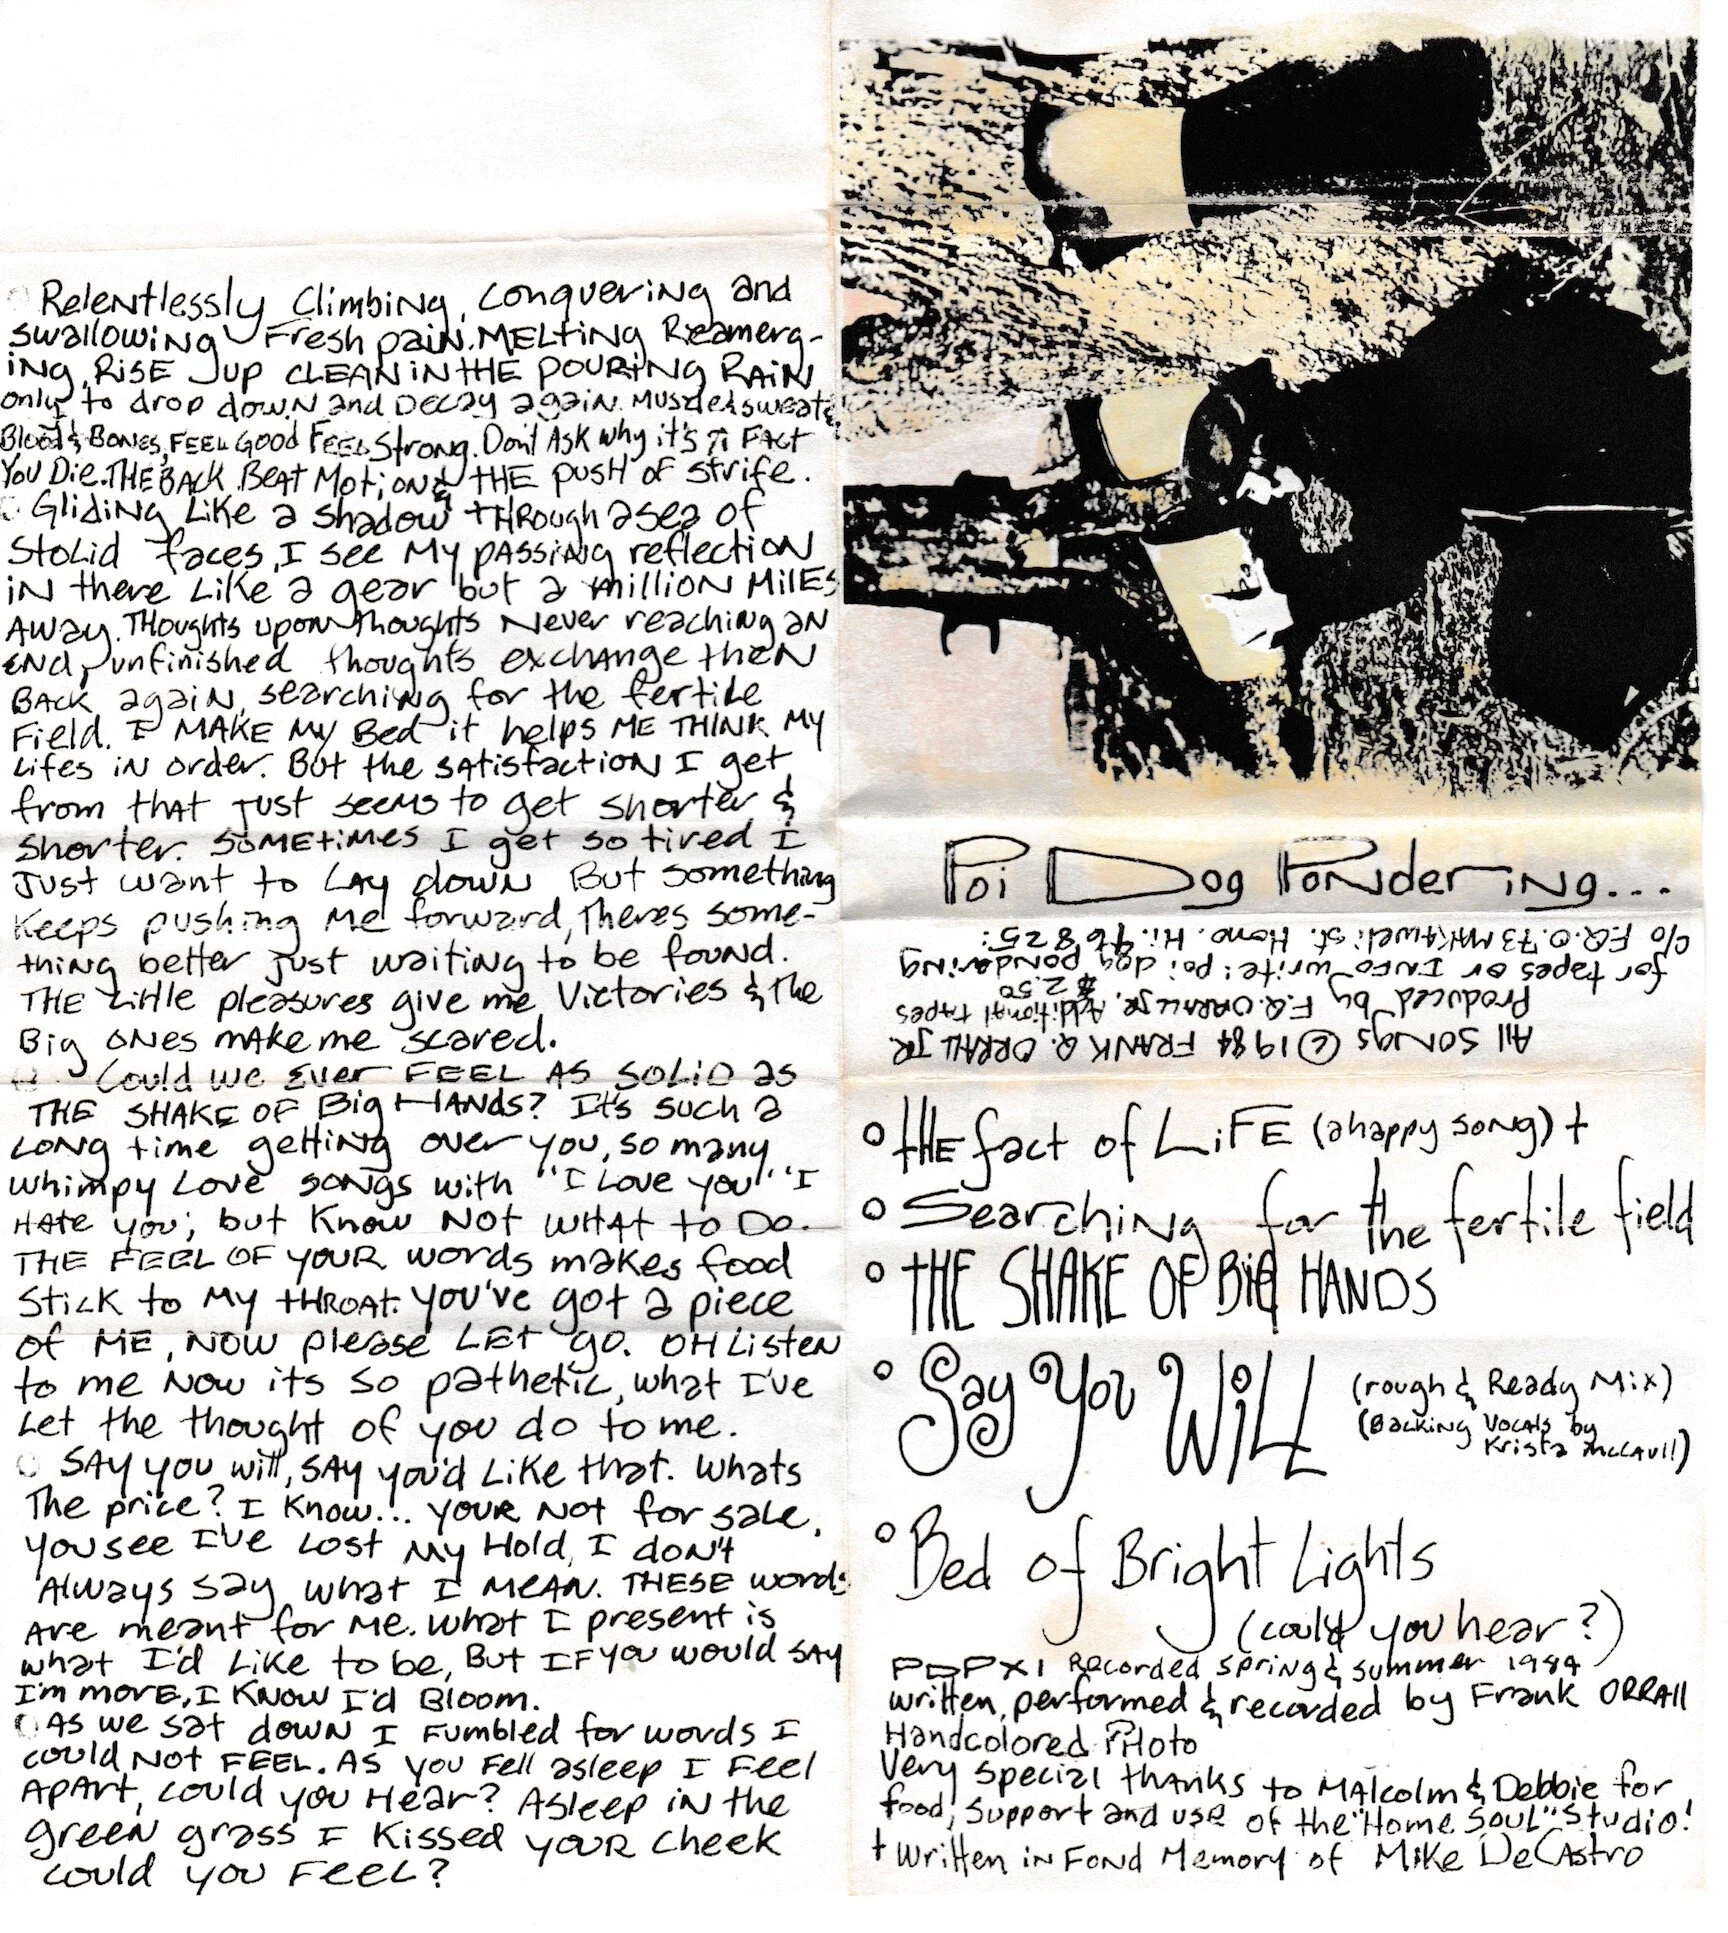 Relentlessly Climbing, conquering and
swallowing Fresh pain. MELTING Reamerg-
ing, RISE up CLEAN IN THE POURING RAIN
only to drop down and Decay again. Muscle & sweat &
Blood & Bones, FEEL Good FEEL Strong. Don't Ask why it's A FAct
You Die. THE BACK BEAT Motion & THE push of strife.
Gliding Like a shadow through a sea of
stolid faces, I see My passing reflection
in there Like a gear but a million MilEs
Away. Thoughts upon thoughts Never reaching an
END, unfinished thoughts exchange then
Back again, searching for the fertile
Field. I MAKE My Bed it helps ME THINK MY
Lifes in order. But the satisfaction I get
from that just seems to get shorter &
Shorter. Sometimes I get so tired I
Just want to Lay down But something
Keeps pushing Me forward, Theres some-
thing better just waiting to be found.
THE Little pleasures give me Victories & The
Big ones make me scared.
Could we Ever FEEL AS SOLID as
THE SHAKE OF Big HANds? It's such a
Long time getting over you, so many
whimpy Love songs with "I Love you" "I
HAte you; but Know NOT WHAT to Do.
THE FEEL OF YOUR words makes food
Stick to My THROAT. You've got a piece
of ME, NOW please LEt go. OH Listen
to me Now its so pathetic, what I've
Let the thought of you do to me.
SAY you will, SAY you'd Like that. Whats
The price? I Know... YOUR NOT for sale.
You see I've Lost My Hold, I don't
Always say what I MEAN. THESE words
Are meant for ME. What I present is
what I'd Like to be, But IF you would SAY
I'm more, I KNOW I'd Bloom.
As we sat down I Fumbled for words I
could NOT FEEL. AS you Fell asleep I FEEL
APART, could you Hear? Asleep in the
green grass I Kissed YOUR cheek
could you FEEL?
Poi Dog Pondering...
All SONgs © 1984 FRANK Q. ORRALL JR.
Produced by F.Q. ORRALL JR. Additional tapes
$2.50
for tapes or INFO write: poi dog pondering
c/o F.Q.O. 73 MAKAweli st. Hono. Hi. 96825:
o tHE fact of LIFE (a happy song) †
o Searching for the fertile field
o tHE SHAKE OF BIG HANDS
o Say You Will (rough & Ready Mix)
(Backing Vocals by
Krista McCaull)
o Bed of Bright Lights
(could you hear?)
PDPXI Recorded Spring & Summer 1984
written, performed & recorded by Frank ORRAll
Handcolored PHoto
Very special thanks to MAlcolm & Debbie for
food, support and use of the "Home Soul" Studio!
† Written in Fond Memory of Mike DeCAstro